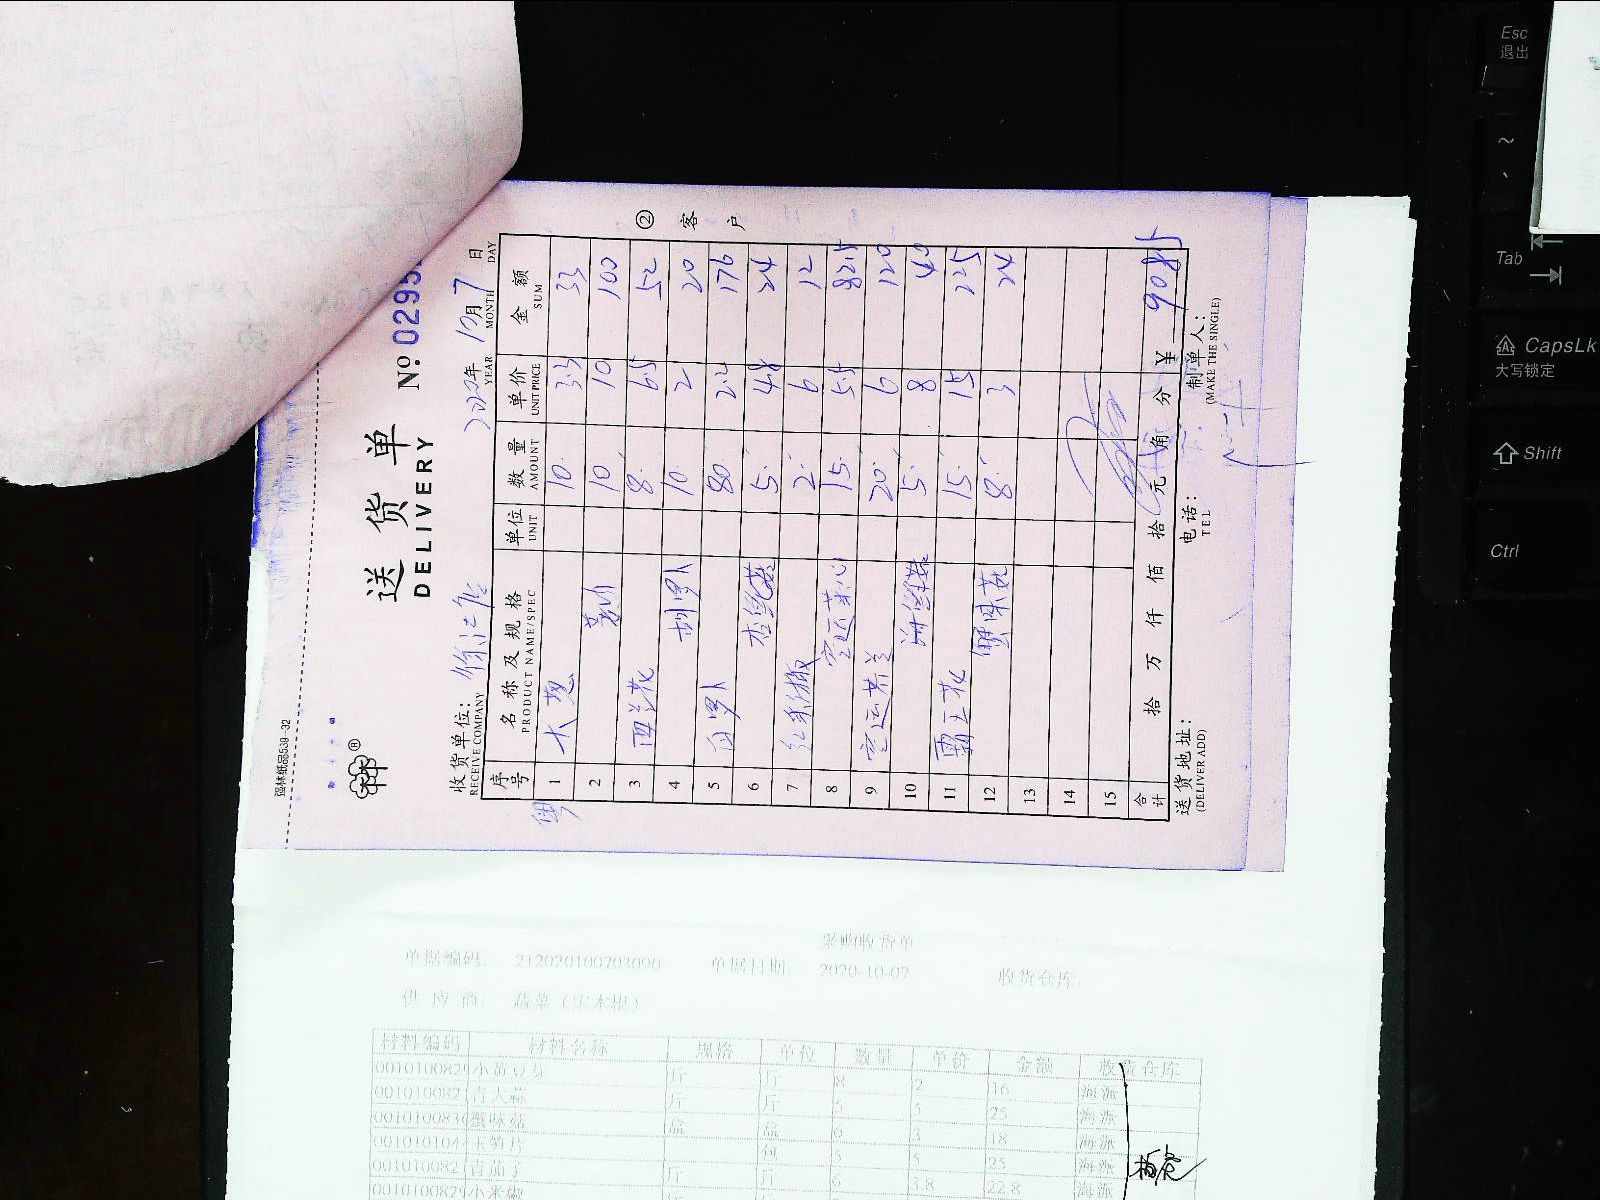 强林纸品539-32
送货单
DELIVERY
No. 0295
收货单位:
RECEIVE COMPANY
2020年 10月 7日
YEAR MONTH DAY
② 客户
序号 名称及规格 单位 数量 单价 金额
PRODUCT NAME/SPEC UNIT AMOUNT UNIT PRICE SUM
粤
1 大葱 10 3.3 33
2 10 10 100
3 西兰花 8 6.5 52
4 胡罗卜 10 2 20
5 白罗卜 80 2.2 176
6 杏鲍菇 5 4.8 24
7 红米椒 2 6 12
8 空运菜心 15 5.5 82.5
9 空运芥兰 20 6 120
10 海鲜菇 5 8 40
11 霸王花 15 15 225
12 蟹味菇 8 3 24
13
14
15
合计 拾 万 仟 佰 拾 元 角 分 ¥ 908.5
送货地址: 电话: 制单人:
(DELIVER ADD) TEL (MAKE THE SINGLE)
采购收货单
单据编码: 212020100703090 单据日期: 2020-10-07 收货仓库:
供应商: 蔬菜(宋木根)
材料编码 材料名称 规格 单位 数量 单价 金额 收货仓库
001010082 小黄豆芽 斤 斤 8 2 16 海派
001010082 青大蒜 斤 斤 5 5 25 海派
001010083 蟹味菇 盒 盒 6 3 18 海派
001010104 玉笋片 包 5 5 25 海派
001010082 青茄子 斤 斤 6 3.8 22.8 海派
001010082 小米椒
Esc
退出
~
Tab
CapsLk
大写锁定
Shift
Ctrl